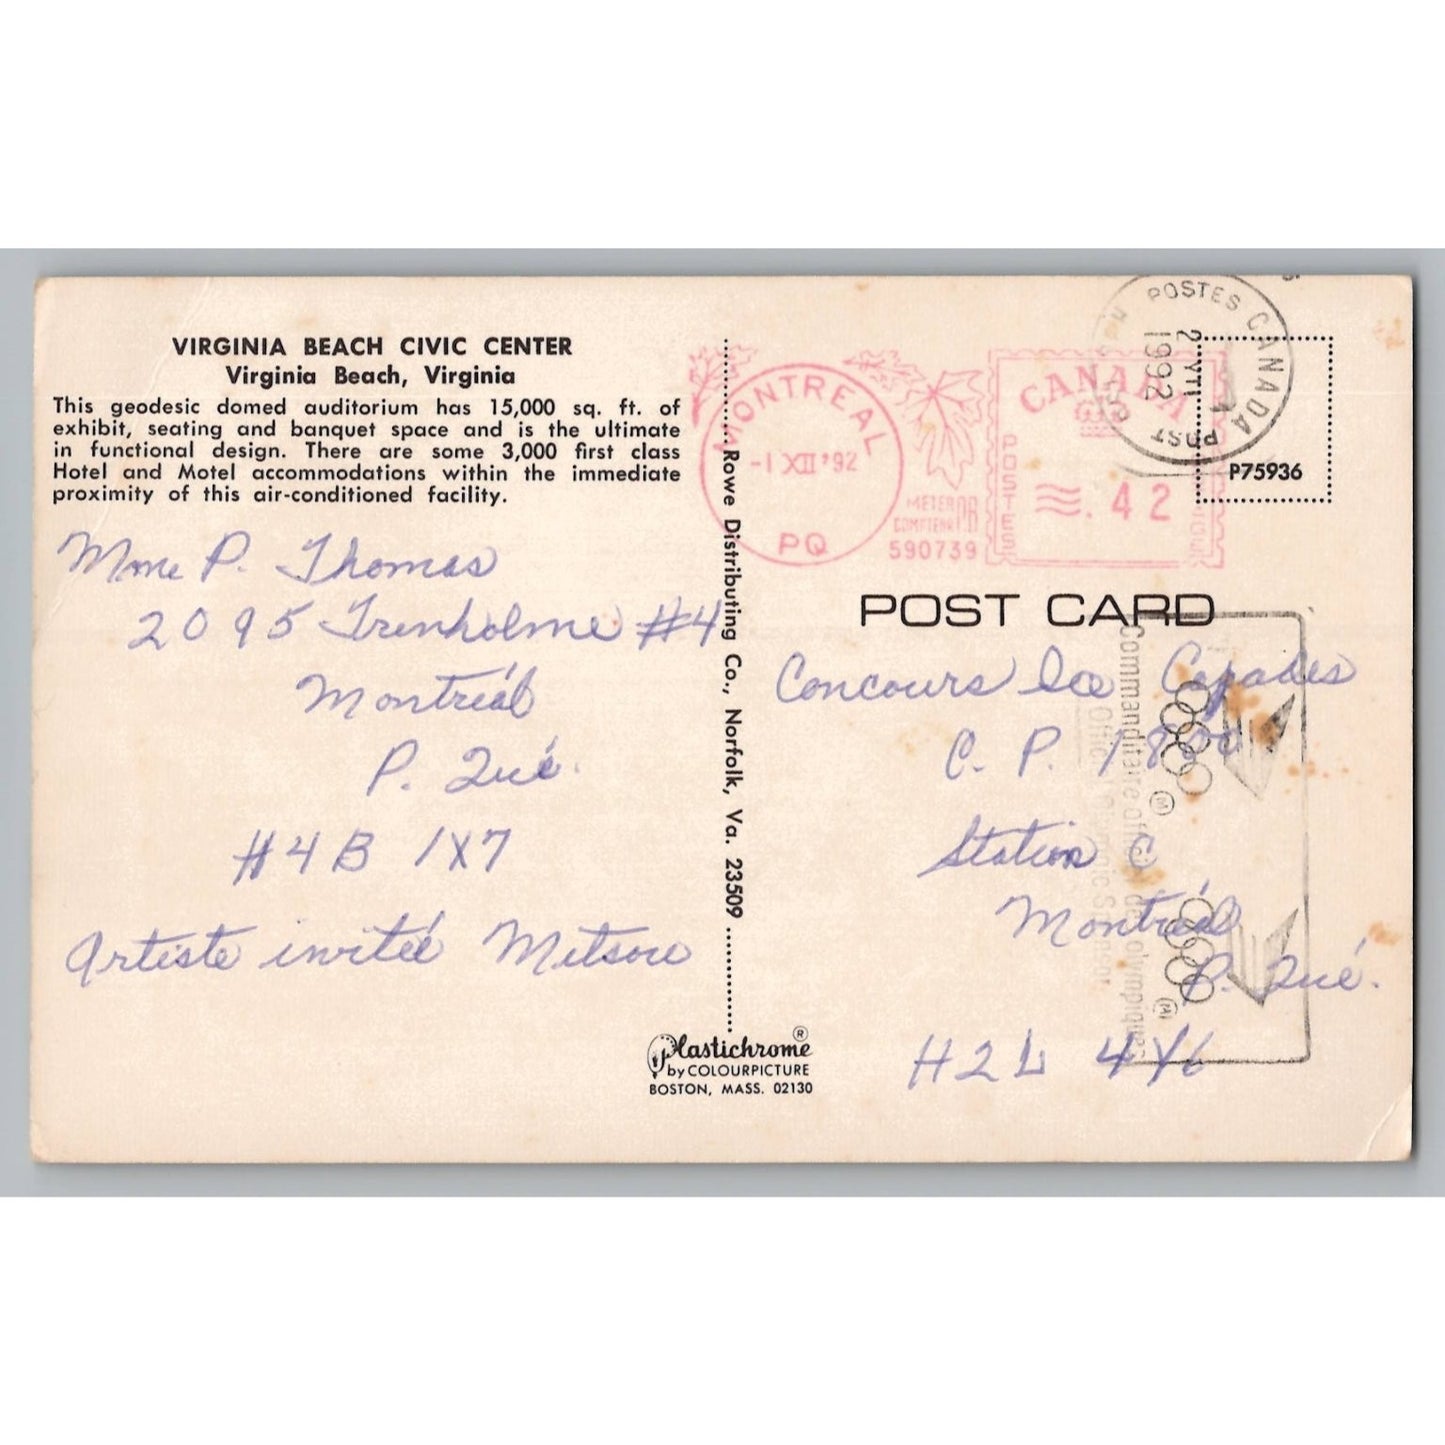 VIRGINIA BEACH CIVIC CENTER
Virginia Beach, Virginia
This geodesic domed auditorium has 15,000 sq. ft. of
exhibit, seating and banquet space and is the ultimate
in functional design. There are some 3,000 first class
Hotel and Motel accommodations within the immediate
proximity of this air-conditioned facility.
Mme P. Thomas
2095 Trenholme #4
Montréal
P. Qué.
#4B 1X7
Artiste invitée Mitsou
Rowe Distributing Co., Norfolk, Va. 23509
Plastichrome ®
by COLOURPICTURE
BOSTON, MASS. 02130
MONTREAL
-1 XII '92
PQ
METER PB
COMPTEUR
590739
CANADA
POSTES
.42
POSTES CANADA
1992
POST
P75936
POST CARD
Concours Ice Capades
C. P. 1800
Station C
Montréal
P. Qué.
H2L 4Y6
Commanditaire officiel des J olympiques